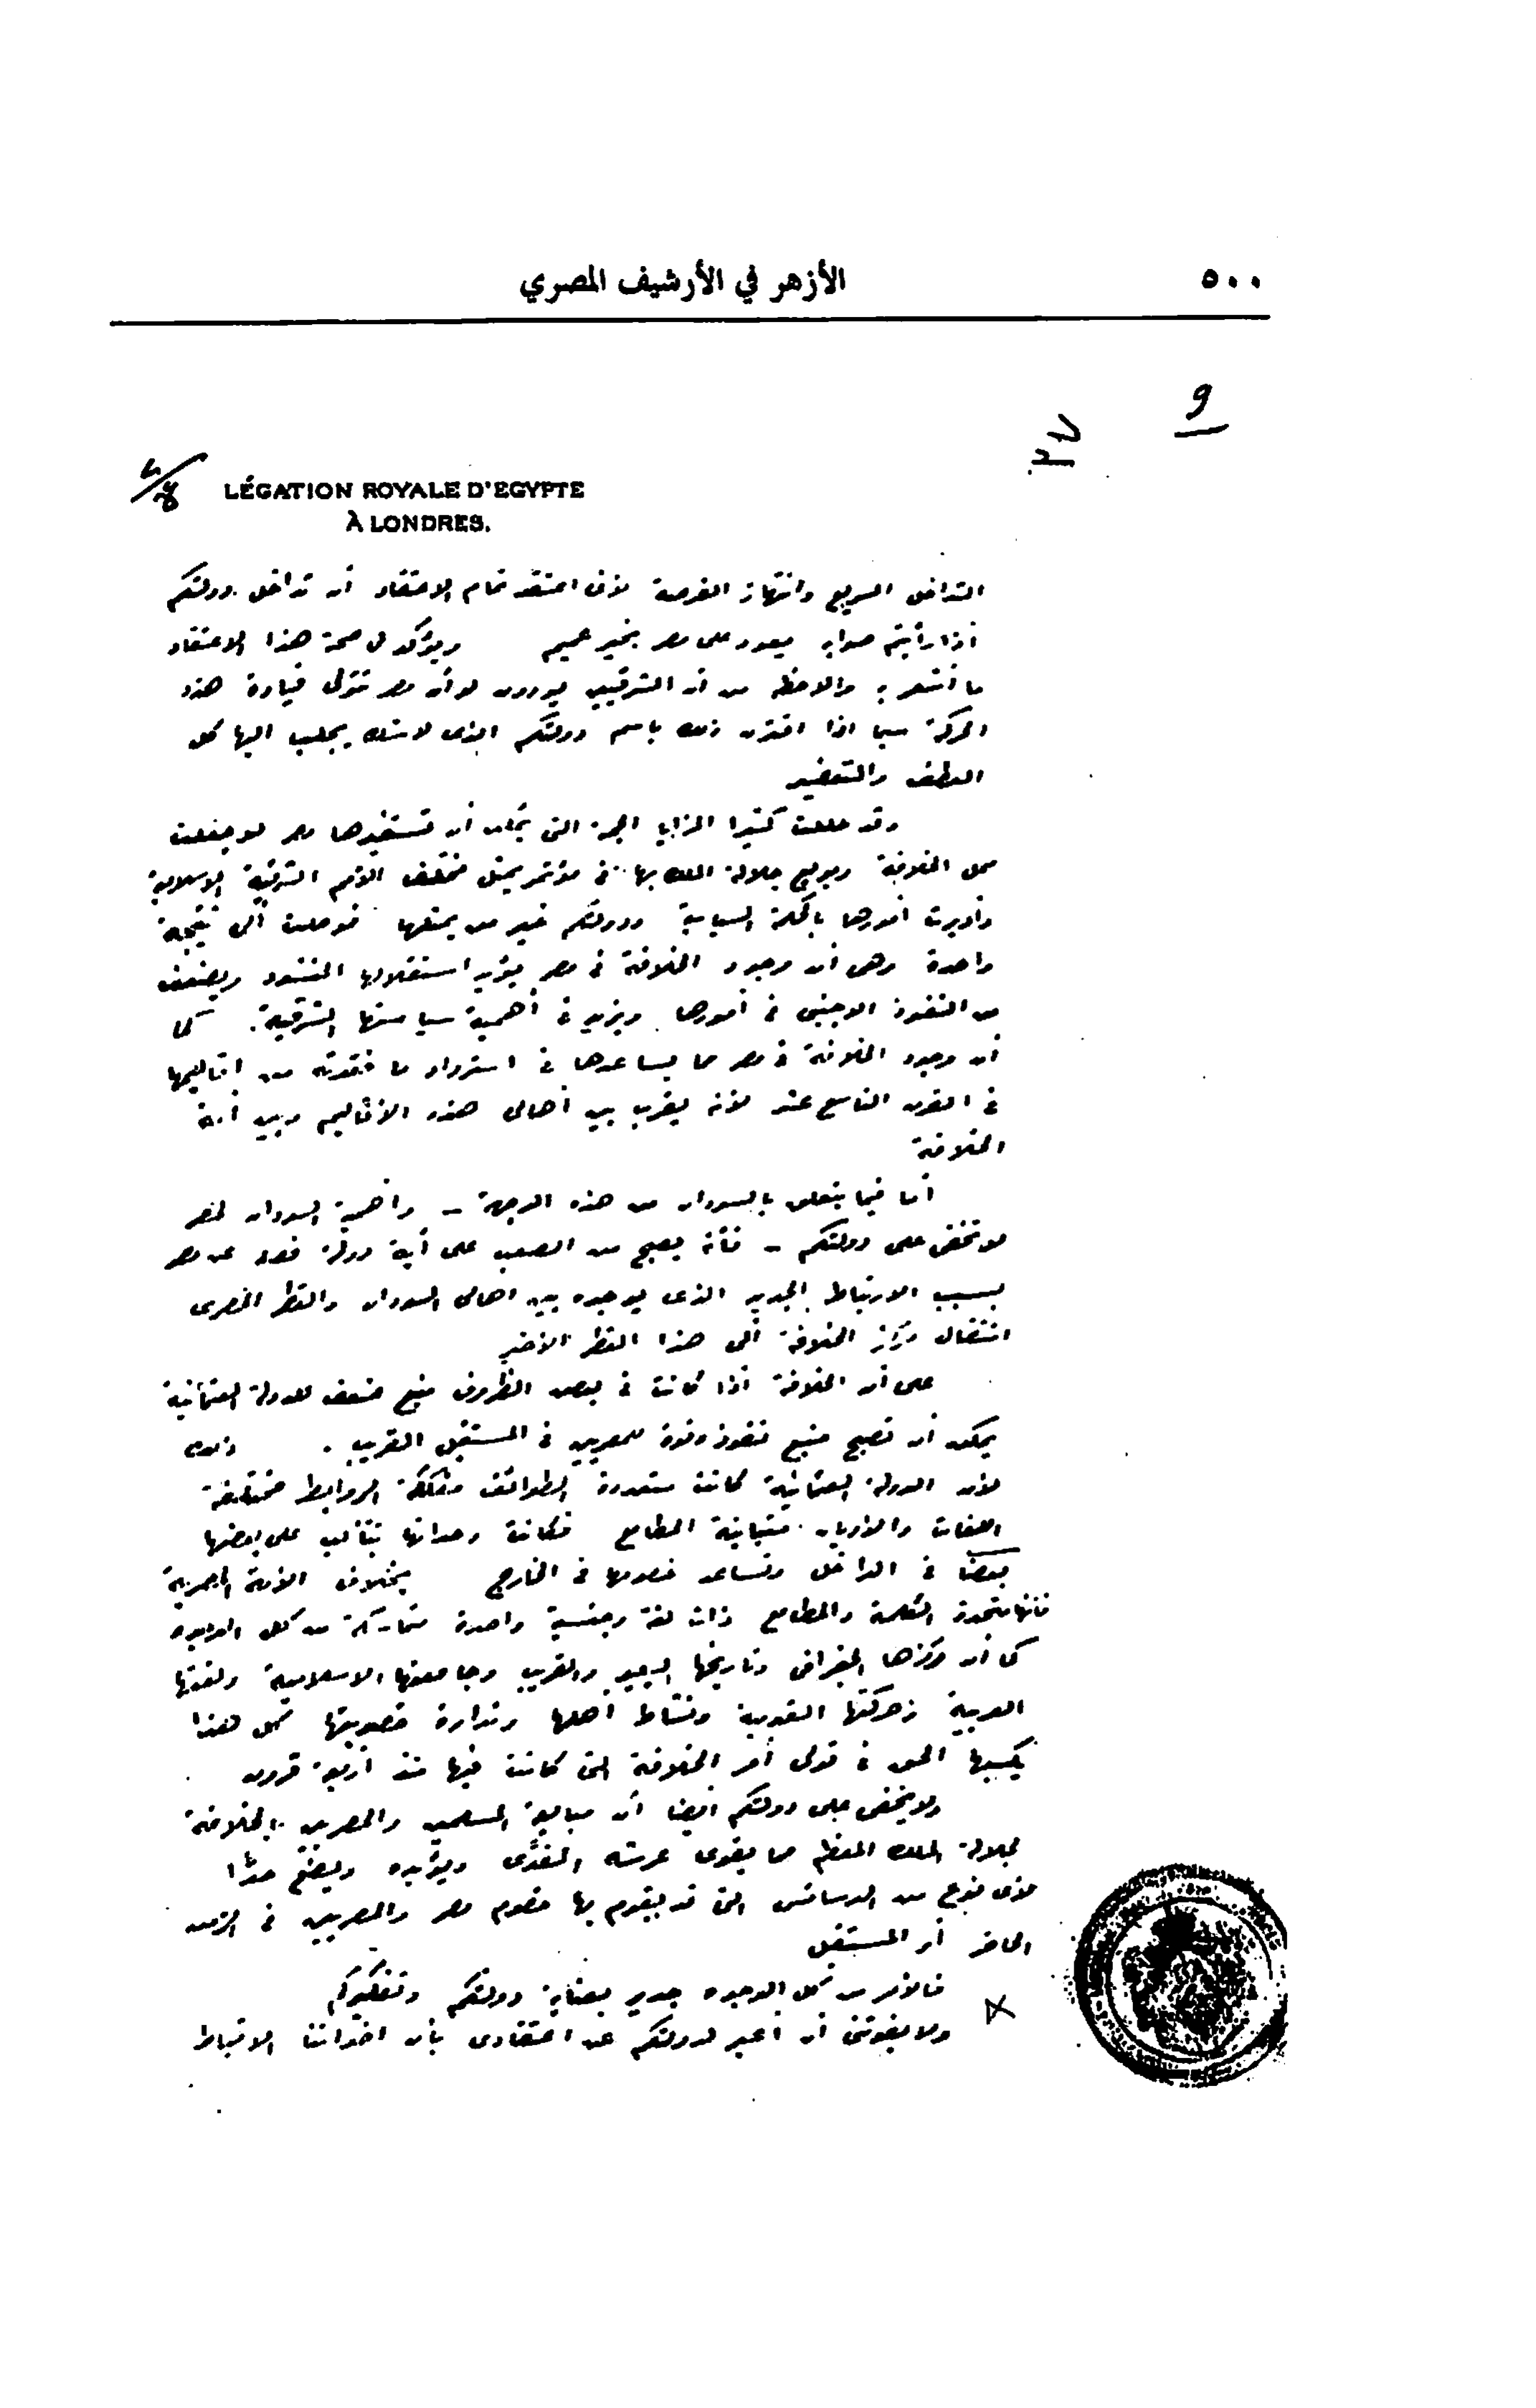 ٥٠٠
الأزهر في الأرشيف المصري
9
LÉGATION ROYALE D'EGYPTE
À LONDRES.
التداخل السريع وانتهاز الفرصة لأنى اعتقد تمام الاعتقاد أن تداخل دولتكم
اذا رأيتم صوابه سيعود على مصر بخير عميم ويؤكد لى صحة هذا الاعتقاد
ما أشعر به والاحظه من أن الشرقيين يودون لو أن مصر تتولى قيادة هذه
الحركة سيما اذا اقترن ذلك باسم دولتكم الذى لا شك يجلب اليها كل
العطف والتعضيد
وقد عللت كثيرا المزايا الجمة التى يمكن أن تستفيدها مصر لو جعلت
محل الخلافة وبويع جلالة الملك بها فى مؤتمر يمثل مختلف الأمم الشرقية الاسلامية
وأديرت أمورها بالحكمة السياسية ودولتكم خير من يمثلها فوصلت الى نتيجة
واحدة وهى أن وجود الخلافة فى مصر يؤيد استقلالها المنشود ويضعف
من النفوذ الاجنبى فى أمورها ويزيد فى أهمية سياستها الشرقية. كما
أن وجود الخلافة فى مصر مما يساعدها فى استرداد ما فقدته من اقاليمها
فى القرن التاسع عشر لأنه يقرب بين أهالى هذه الأقاليم وبين أمة
الخلافة
أما فيما يتعلق بالسودان من هذه الوجهة - وأهمية السودان لمصر
لا تخفى على دولتكم - فأنه يصبح من الصعب على أية دولة فصله عن مصر
بسبب الارتباط الجديد الذى يوجده بين اهالى السودان والقطر المصرى
انتقال مركز الخلافة الى هذا القطر الأخير
على أن الخلافة اذا كانت فى بعض الظروف منبع ضعف للدولة العثمانية
يمكن أن تصبح منبع نفوذ وقوة للمصريين فى المستقبل القريب. وذلك
لأن الدولة العثمانية كانت متعددة الطوائف مفككة الروابط مختلفة
اللغات والأديان متباينة المطامع فكانت وحداتها تتألب على بعضها
بعضا فى الداخل وتساعد خصومها فى الخارج بخلاف الأمة المصرية
فانها متحدة الكلمة والمطامع ذات لغة وجنسية واحدة متماسكة من كل الوجوه
كما أن مركزها الجغرافى وتاريخها البعيد والقريب وجامعتها الاسلامية ولغتها
العربية وحركتها القومية ونشاط أهلها وندارة خصوبتها كل هذا
يكسبها الحق فى تولى أمر الخلافة التى كانت فيها منذ أربعة قرون
ولا يخفى على دولتكم ايضا أن مبايعة المسلمين والمصريين بالخلافة
لجلالة الملك المعظم مما يقوى عرشه المفدى ويؤيده ويضع حدا
لأى نوع من الدسائس التى قد يقوم بها خصوم مصر والمصريين فى الزمن
الحاضر أو المستقبل
فالأمر من كل الوجوه جدير بعناية دولتكم وتفكيركم
ولا يفوتنى أن أعبر لدولتكم عن اعتقادى بأن اخواننا الاقباط